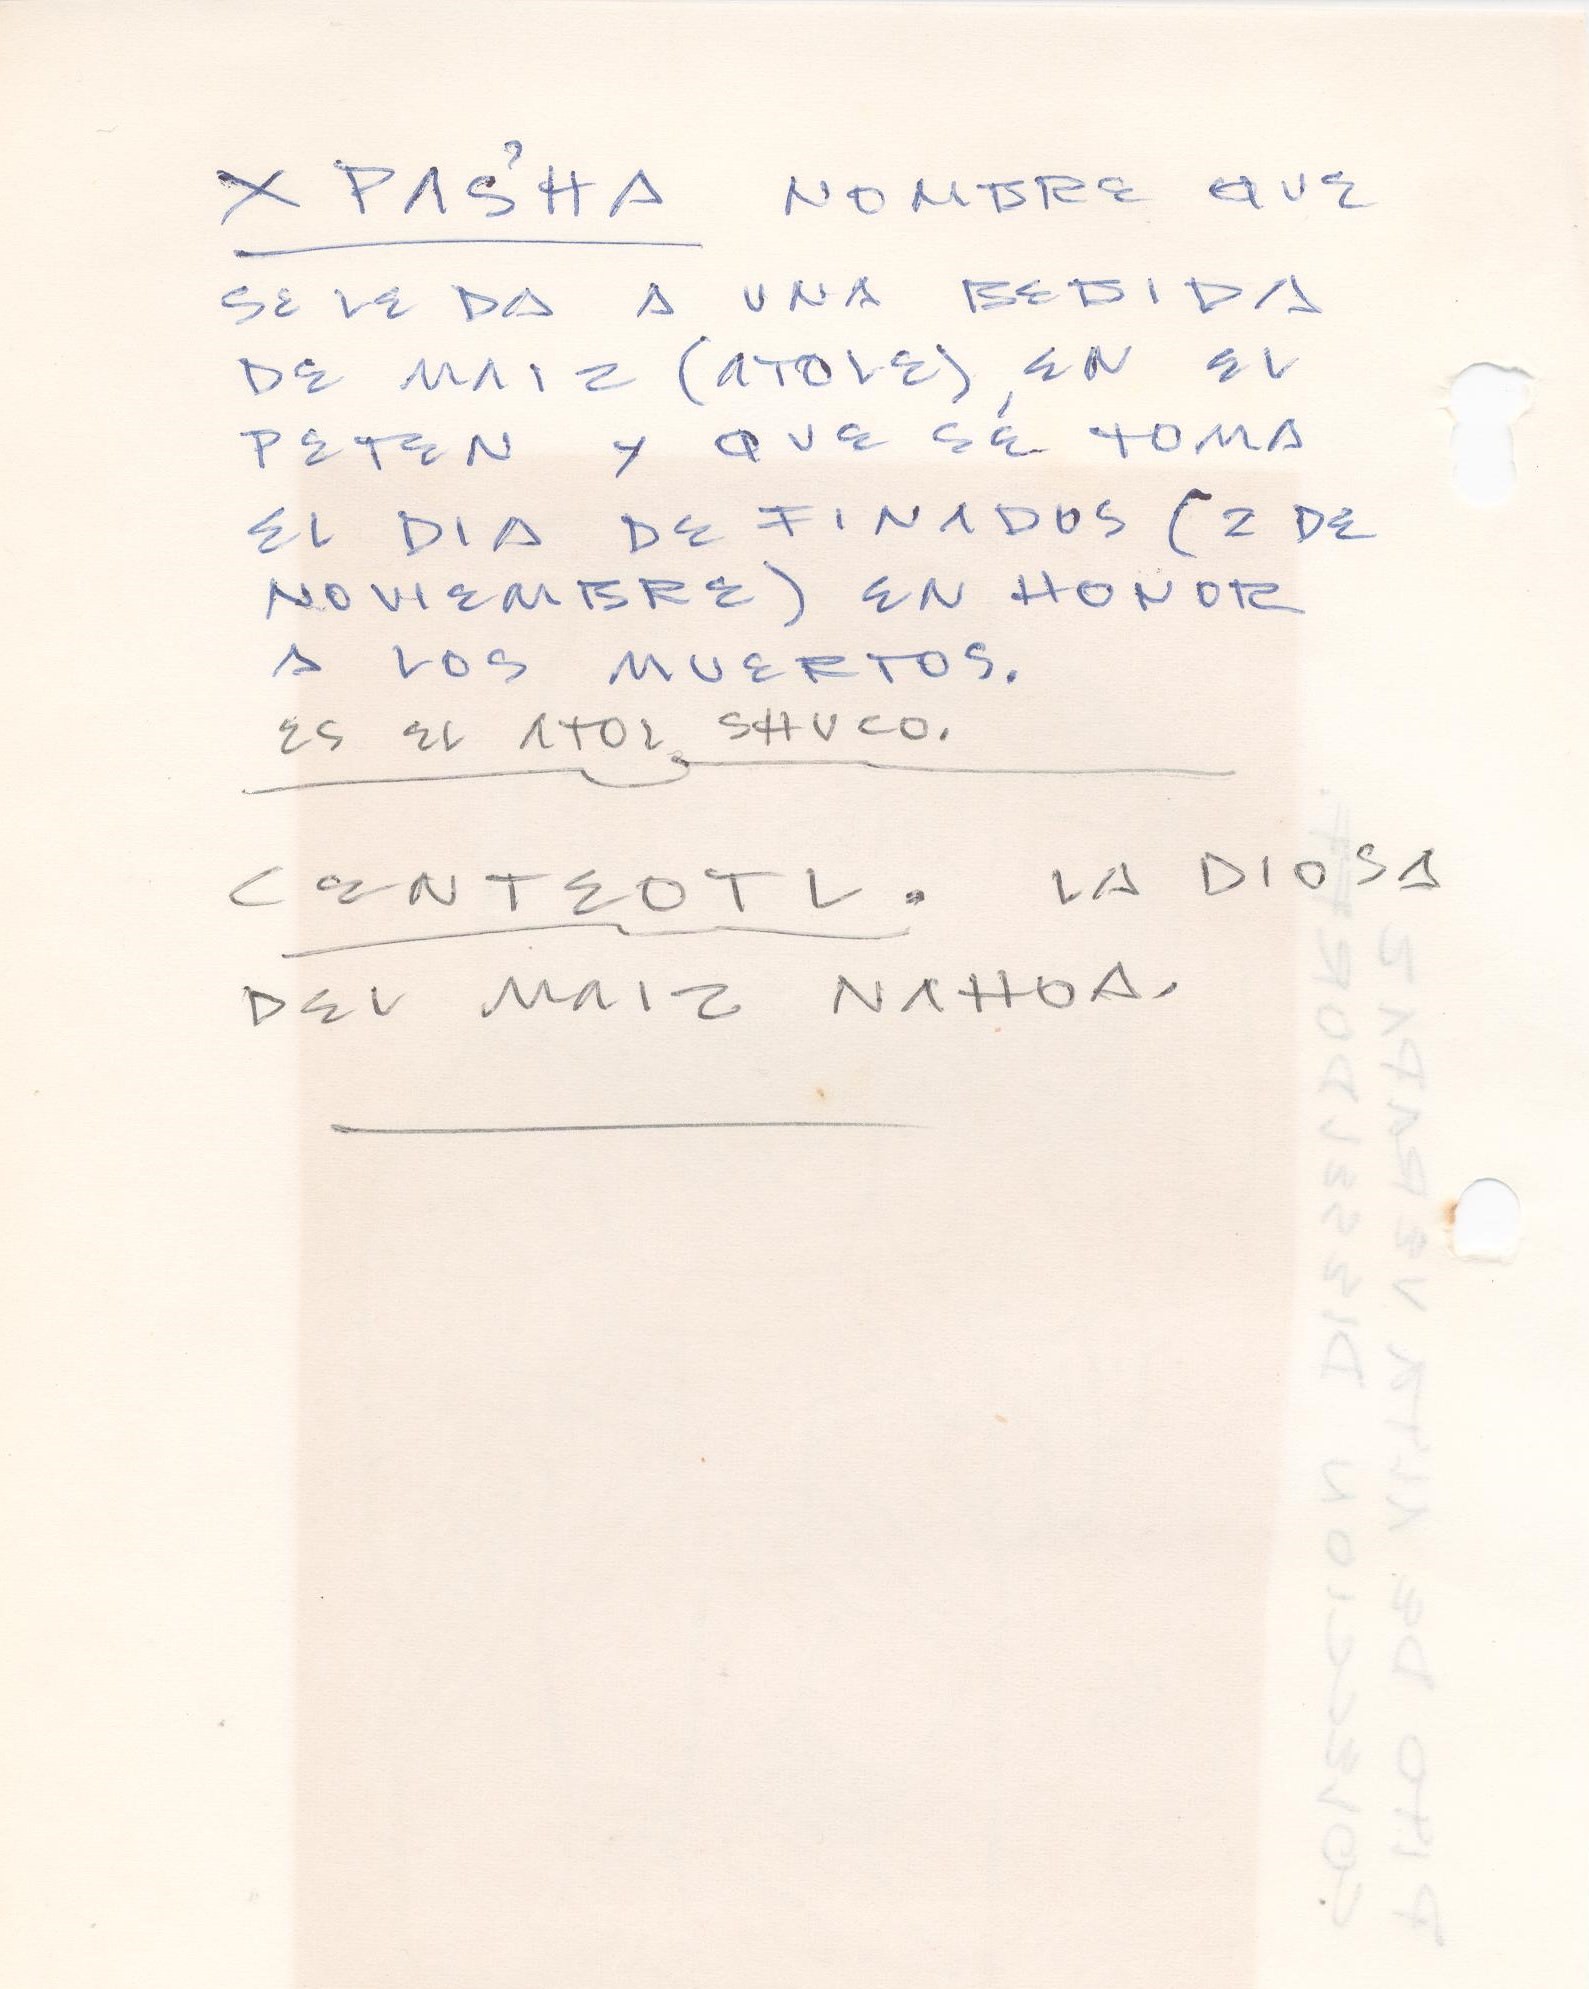 X PAS'HA NOMBRE QUE
SE LE DA A UNA BEBIDA
DE MAIZ (ATOLE), EN EL
PETEN Y QUE SE TOMA
EL DIA DE FINADOS (2 DE
NOVIEMBRE) EN HONOR
A LOS MUERTOS.
ES EL ATOL SHUCO.
CENTEOTL. LA DIOSA
DEL MAIZ NAHOA.